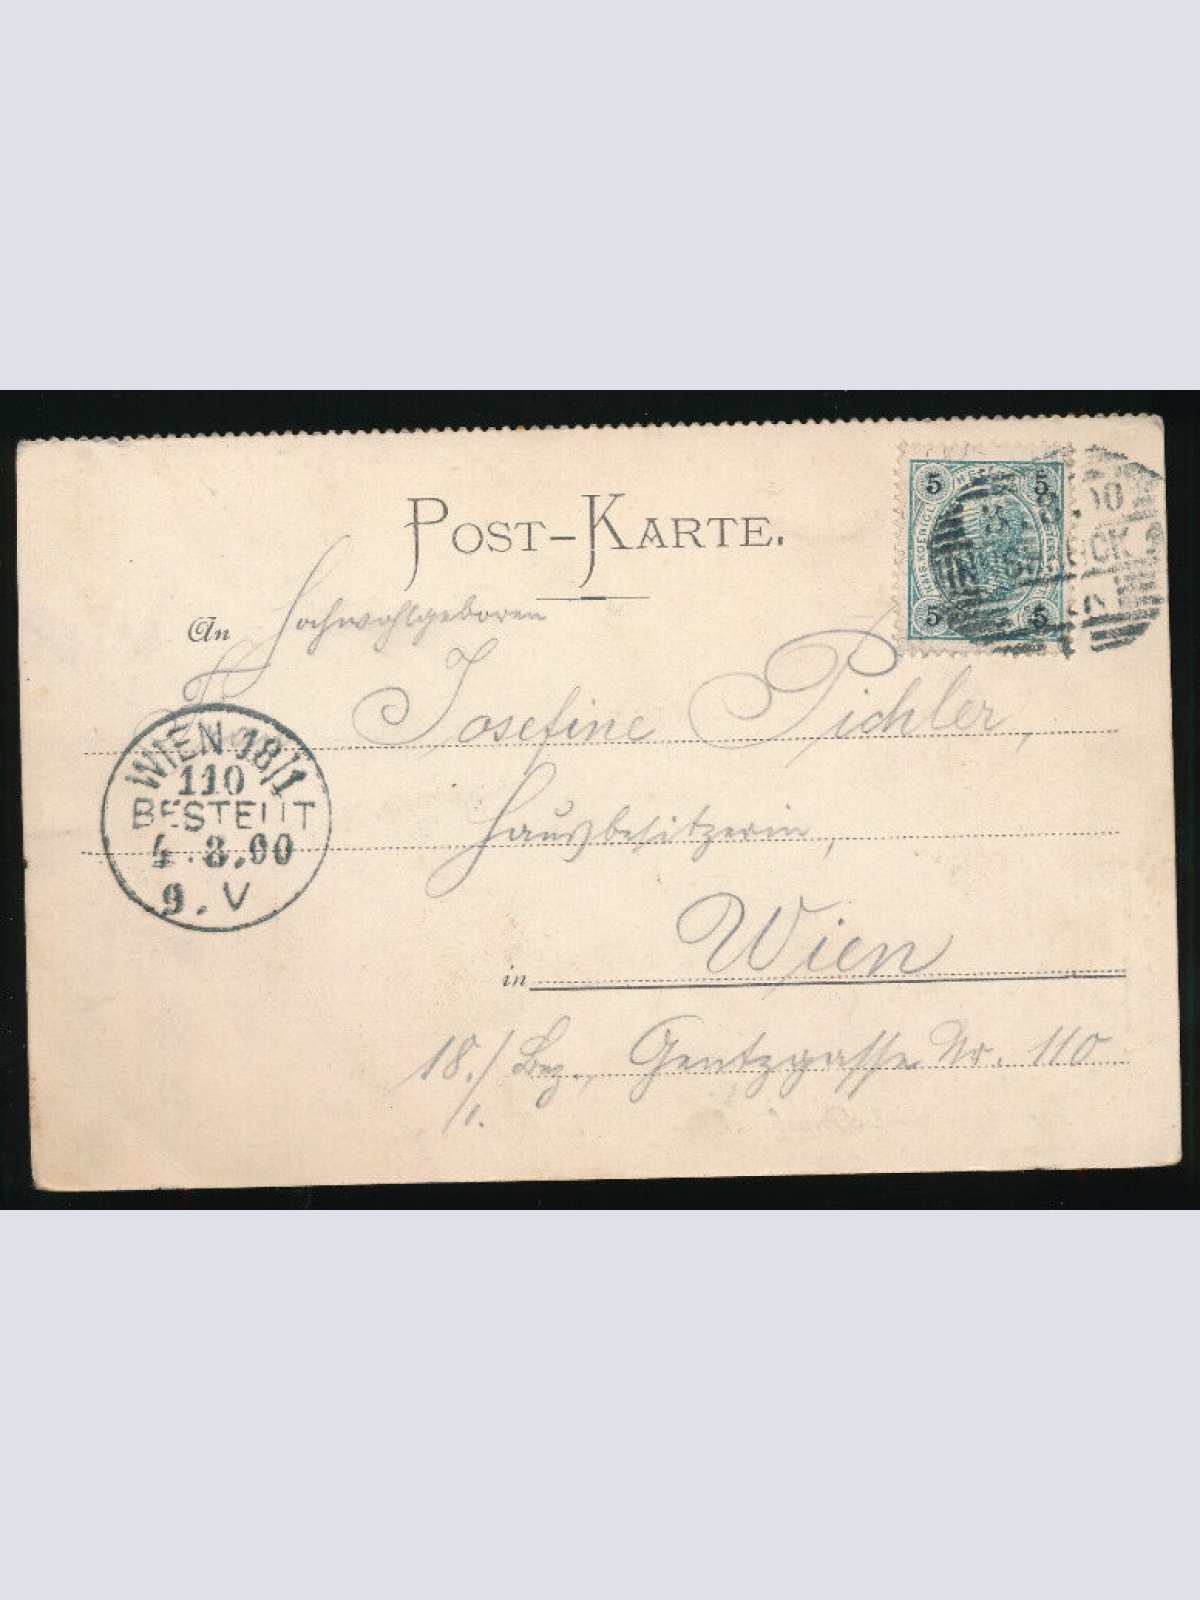 POST-KARTE.
5 5
5 5
INNSBRUCK
An Hochwohlgeboren
Frau Josefine Pichler,
Hausbesitzerin,
in Wien
18./ Bez., Gentzgasse Nr. 110
/1.
WIEN 18/1
110
BESTELLT
4.8.00
9.V